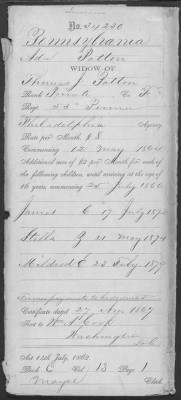 No. 34230
Pennsylvania
Ada Patton
WIDOW OF
Thomas J. Patton
Rank Private Co. "F"
Regt. 53" Penna
Philadelphia Agency
Rate per Month, $8
Commencing 12 May 1864
Additional sum of $2 per month for each of
the following children, until arriving at the age of
16 years, commencing 25 July 1866
James E 17 July 1873
Stella 21 May 1874
Mildred E 23 July 1879
Certificate dated 27 Nov 1867
Sent to W. N. Cook
Washington
Act 14th July, 1862.
Book C Vol. 13 Page 1
Clerk